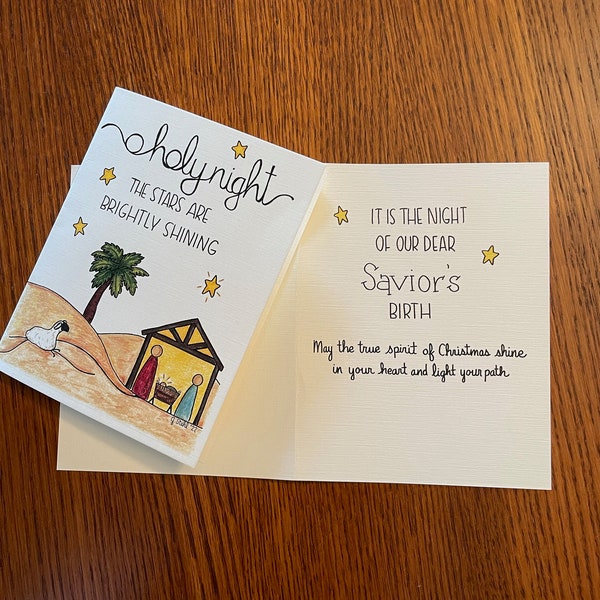 O holy night
THE STARS ARE
BRIGHTLY SHINING
IT IS THE NIGHT
OF OUR DEAR
Savior's
BIRTH
May the true spirit of Christmas shine
in your heart and light your path